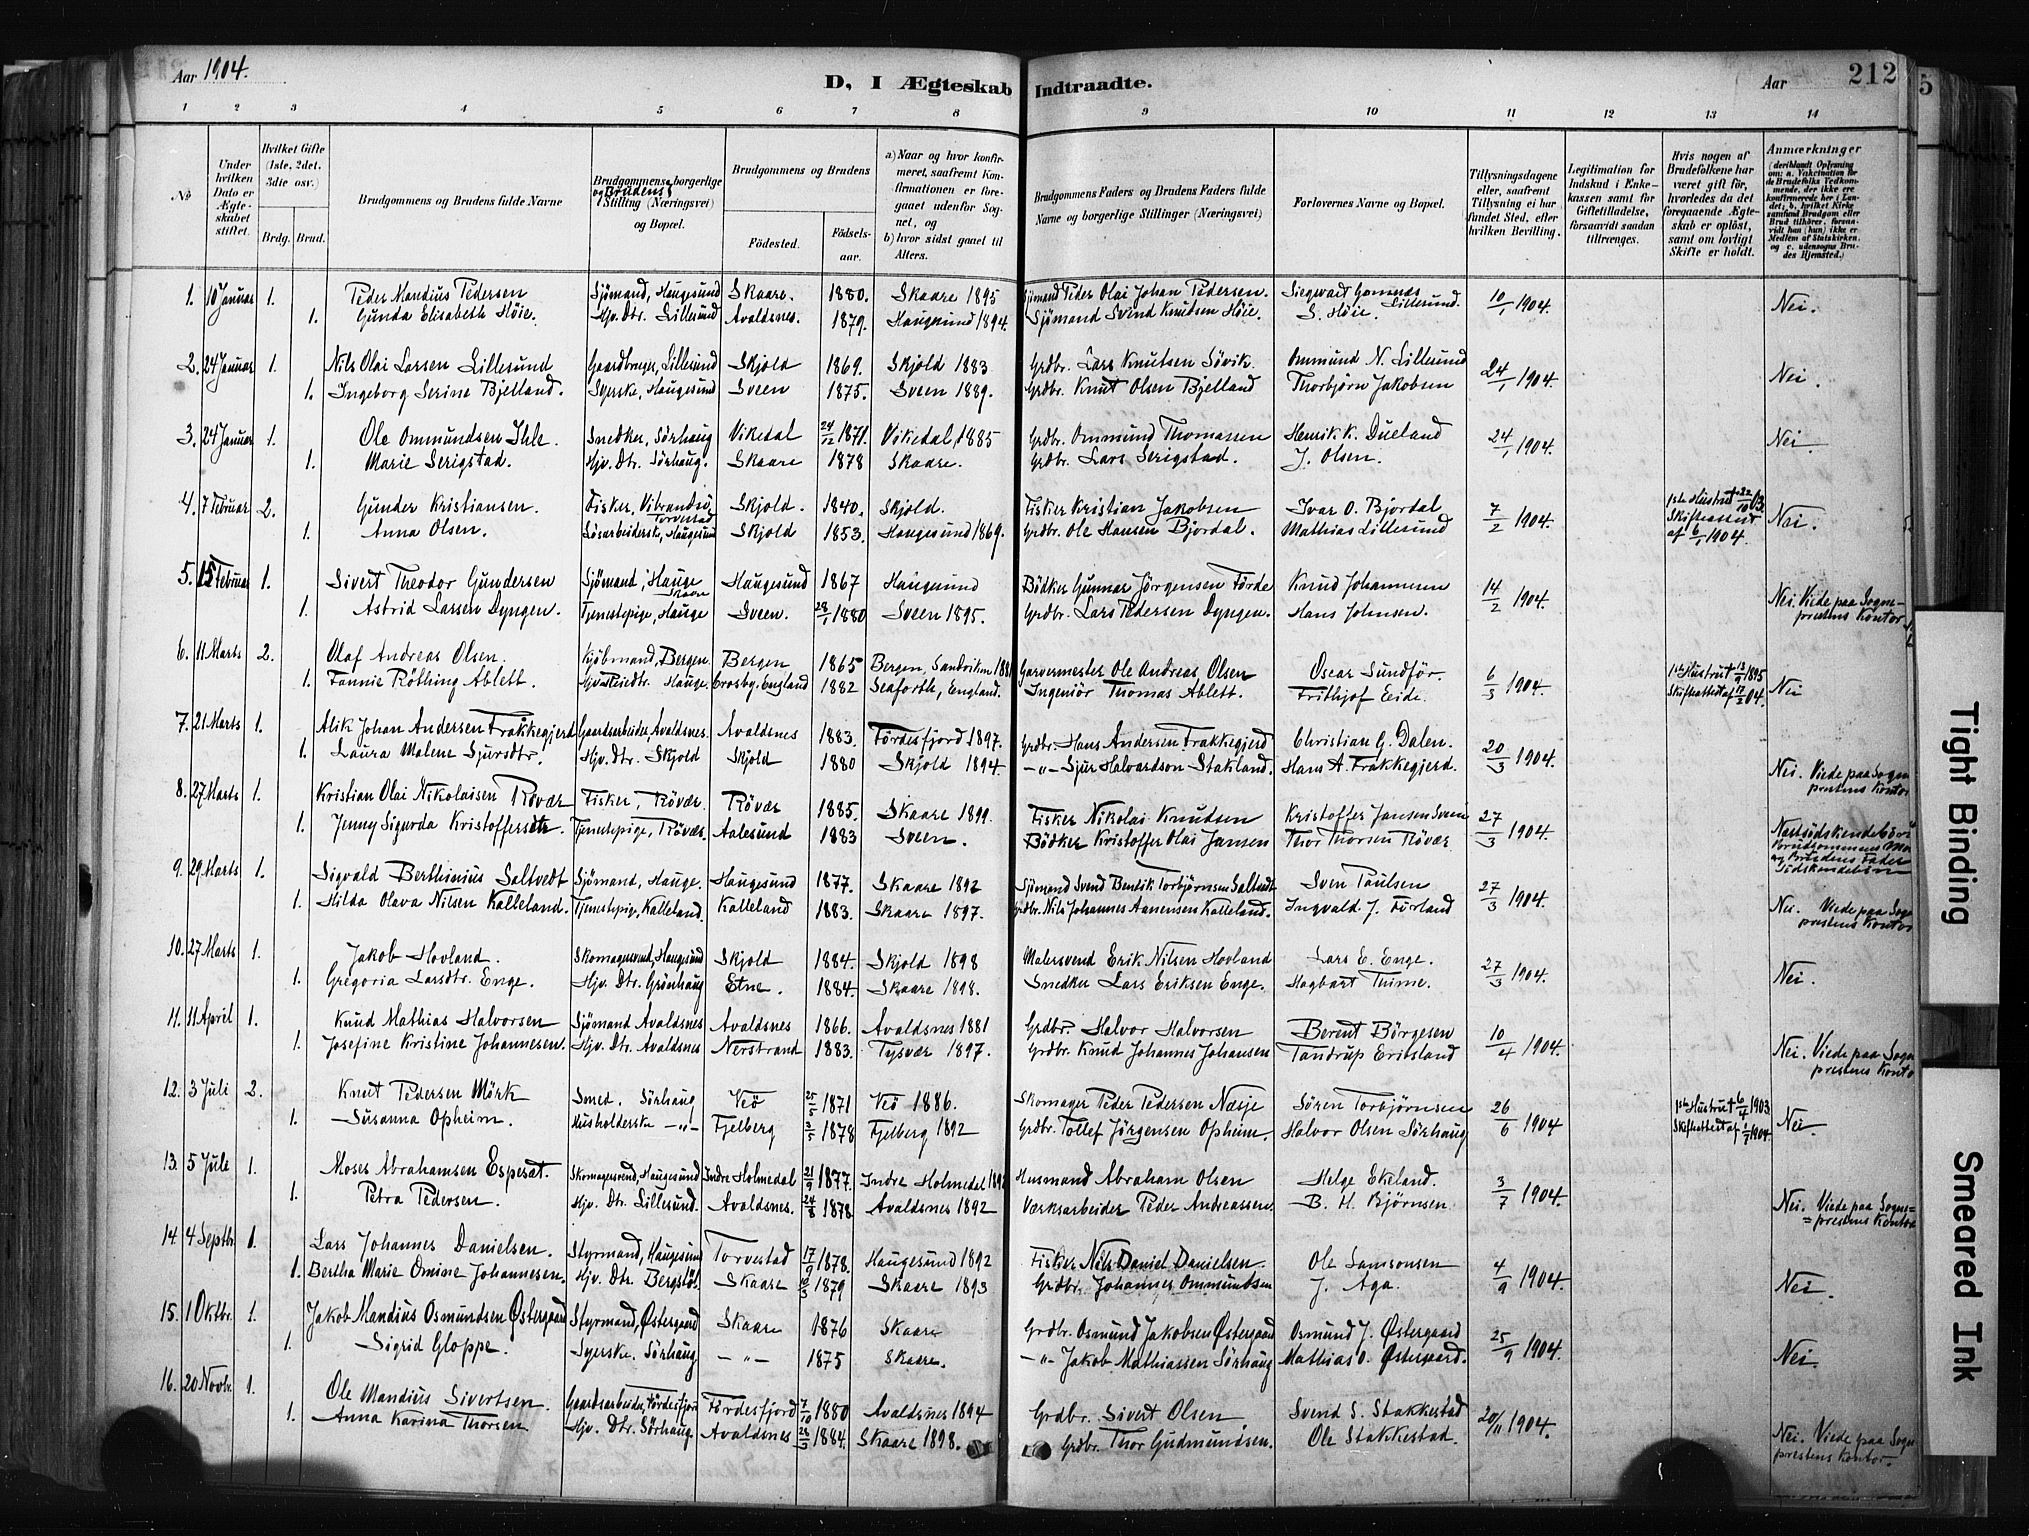 Aar 1904.
D, I Ægteskab Indtraadte.
Aar
212
5
1 2 3 4 5 6 7 8 9 10 11 12 13 14
No
Under hvilken Dato er Ægteskabet stiftet.
Hvilket Gifte (1ste, 2det, 3die osv.)
Brdg. Brud.
Brudgommens og Brudens fulde Navne
Brudgommens og Brudens borgerlige Stilling (Næringsvei) og Bopæl.
Brudgommens og Brudens
Fødested.
Fødselsaar.
a) Naar og hvor konfirmeret, saafremt Konfirmationen er foregaaet udenfor Sognet, og
b) hvor sidst gaaet til Alters.
Brudgommens Faders og Brudens Faders fulde Navne og borgerlige Stillinger (Næringsvei)
Forlovernes Navne og Bopæl.
Tillysningsdagene eller, saafremt Tillysning ei har fundet Sted, efter hvilken Bevilling.
Legitimation for Indskud i Enkekassen samt for Giftetilladelse, forsaavidt saadan tiltrænges.
Hvis nogen af Brudefolkene har været gift før, hvorledes da det foregaaende Ægteskab er opløst, samt om lovligt Skifte er holdt.
Anmærkninger (deriblandt Oplysning om: a. Vakcination for de Brudefolks Vedkommende, der ikke ere konfirmerede her i Landet, b. hvilket Kirkesamfund Brudgom eller Brud tilhører, forsaavidt han (hun) ikke er Medlem af Statskirken, og c. udensogns Brudes Hjemsted.)
1. 10 Januar 1. Peder Mandius Pedersen Sjömand, Haugesund Skaare. 1880. Skaare 1895 Sjömand Peder Olai Johan Pedersen. Siegwart 10/1 1904. Nei.
1. Gunda Elisabeth Höie. Hjv. Dtr. Lillesund Avaldsnes. 1879. Haugesund 1894. Sjömand Svend Knudsen Höie. S. Höie. Lillesund.
2. 24 Januar 1. Nils Olai Larsen Lillesund Gaardbruger, Lillesund Skjold 1869. Skjold 1883 Grdbr. Lars Knutsen Lövik. Ommund N. Lillesund 24/1 1904. Nei.
1. Ingeborg Serine Bjelland. Syerske, Haugesund Sveen 1875. Sveen 1889. Grdbr. Knut Olsen Bjelland Thorbjörn Jakobsen
3. 24 Januar 1. Ole Ommundsen Ihle. Snedker, Sörhaug Vikedal 24/12 1871. Vikedal, 1885 Grdbr. Ommund Thomassen Henrik K. Dueland 24/1 1904. Nei
1. Marie Serigstad. Hjv. Dtr. Sörhaug. Skaare 1878 Skaare. Grdbr. Lars Serigstad. J. Olsen.
4. 7 Februar 2. Gunder Kristiansen. Fisker, Vibrandsö Torvestad Skjold. 1840. Skjold. Fisker Kristian Jakobsen Ivar O. Bjordal 7/2 1904. 1ste Hustru † 22/10 03. Skifteattest af 6/1 1904. Nei.
1. Anna Olsen. Lösarbeiderske, Haugesund Skjold 1853. Haugesund 1869. Grdbr. Ole Hansen Bjordal. Mathias Lillesund
5. 15 Februar 1. Sivert Theodor Gundersen Sjömand, Hauge Skaare Haugesund 1867 Haugesund Bödker Gunnar Jörgensen Förde Knud Johannesen 14/2 1904. Nei. Viede paa Sogneprestens Kontor.
1. Astrid Larsen Dyngen. Tjenestepige, Hauge Sveen. 28/1 1880 Sveen 1895. Grdbr. Lars Pedersen Dyngen. Hans Johnsen.
6. 11 Marts 2. Olaf Andreas Olsen. Kjöbmand, Bergen. Bergen 1865 Bergen, Sandviken 1881 Garvermester Ole Andreas Olsen Oscar Sundför. 6/3 1904. 1ste Hustru † 13/9 1895 Skifteattest af 17/2 04. Nei
1. Fannie Röthing Ablett. Hauge. Crosby England 1882 Seaforth, England. Ingeniör Thomas Ablett. Frithjof Eide.
7. 21 Marts 1. Alik Johan Andersen Frakkegjerd Gaardsarbeider, Avaldsnes. Avaldsnes 1883. Fördesfjord 1897. Grdbr. Hans Andersen Frakkegjerd Christian G. Dalen. 20/3 1904. Nei. Viede paa Sogneprestens Kontor
1. Laura Malene Sjursdtr. Hjv. Dtr. Skjold Skjold 1880 Skjold 1894. —"— Sjur Halvardson Stakland. Hans A. Frakkegjerd.
8. 27 Marts 1. Kristian Olai Nikolaisen Rövær Fisker, Rövær. Rövær 1885. Skaare 1899. Fisker Nikolai Knudsen Kristoffer Jansen Sveen 27/3 1904. Næstsödskendebörn Brudgommens Mo og Brudens Fader Södskendebörn
1. Jenny Sigurda Kristoffersdtr. Tjenestepige, Rövær. Aalesund 1883 Sveen. Bödker Kristoffer Olai Jansen Thor Thorsen Rövær
9. 29 Marts 1. Sigvald Berthinius Saltvedt Sjömand, Hauge. Haugesund 1877. Skaare 1892 Sjömand Svend Bendik Torbjörnsen Saltvedt Sven Paulsen 27/3 1904. Nei. Viede paa Sogneprestens Kontor
1. Hilda Olava Nilsen Kalleland. Tjenestepige, Kalleland. Kalleland 1883. Skaare 1897. Grdbr. Nils Johannes Aanensen Kalleland. Ingvald J. Förland
10. 27 Marts 1. Jakob Hovland. Skomagersvend, Haugesund Skjold 1884. Skjold 1898 Malersvend Erik Nilsen Hovland Lars E. Enge. 27/3 1904. Nei.
1. Gregoria Larsdtr. Enge. Hjv. Dtr. Grönhaug Etne. 1884. Skaare 1898. Snedker Lars Eriksen Enge. Hagbart Thime.
11. 11 April 1. Knud Mathias Halvorsen Sjömand Avaldsnes Avaldsnes 1866. Avaldsnes 1881 Grdbr. Halvor Halvorsen Berent Börgesen 10/4 1904. Nei. Viede paa Sogneprestens Kontor
1. Josefine Kristine Johannesen. Hjv. Dtr. Avaldsnes Nerstrand 1883. Tysvær 1897. Grdbr. Knud Johannes Johansen Tandrup Eriksland
12. 3 Juli 2. Knut Pedersen Mörk Smed. Sörhaug Veö 25/5 1871 Veö 1886. Skomager Peder Pedersen Næsje Sören Torbjörnsen 26/6 1904 1ste Hustru † 6/4 1903. Skifteattest af 1/7 1904. Nei.
1. Susanna Opheim. Husholderske —"— Fjelberg 3/5 1878 Fjelberg 1892 Grdbr. Tollef Jörgensen Opheim. Halvor Olsen Sörhaug
13. 5 Juli 1. Moses Abrahamsen Esperat. Skomagersvend, Haugesund Indre Holmedal 21/9 1877. Indre Holmedal 1892 Husmand Abraham Olsen Helge Ekeland. 3/7 1904. Nei. Viede paa Sogneprestens Kontor
1. Petra Pedersen. Hjv. Dtr. Lillesund. Avaldsnes. 24/8 1878 Avaldsnes 1892 Værksarbeider Peder Andreassen. B. H. Bjørnsen.
14. 4 Septbr. 1. Lars Johannes Danielsen. Styrmand, Haugesund Torvestad 17/9 1878. Haugesund 1892 Fisker Nils Daniel Danielsen. Ole Samsonsen 4/9 1904. Nei.
1. Bertha Marie Omine Johannesen. Hjv. Dtr. Bergslöt. Skaare 10/3 1879 Skaare 1893 Grdbr. Johannes Ommundsen J. Aga.
15. 1 Oktbr. 1. Jakob Mandius Osmundsen Østergaard Styrmand, Østergaard Skaare 1876 Skaare Grdbr. Osmund Jakobsen Østergaard Osmund J. Østergaard 25/9 1904. Nei
1. Sigrid Gloppe. Syerske. Sörhaug —"— 1875 Skaare. —"— Jakob Mathiassen Sörhaug Mathias O. Østergaard.
16. 20 Novbr. 1. Ole Mandius Sivertsen. Gaardsarbeider, Fördesfjor Fördesfjord 7/10 1880 Avaldsnes 1894 Grdbr. Sivert Olsen Svend S. Stakkestad 20/11 1904. Nei. Viede paa Sogneprestens Kontor.
1. Anna Karina Thorsen Hjv. Dtr. Sörhaug. Avaldsnes 28/3 1884. Skaare 1898. Grdbr. Thor Gudmundsen. Ole Stakkestad.
Tight Binding
Smeared Ink